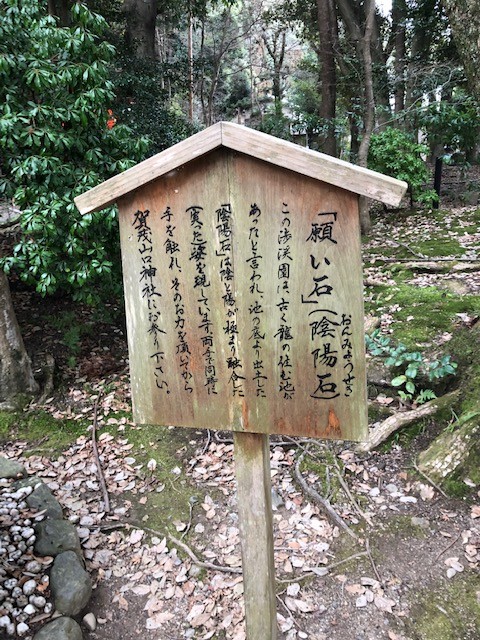 「願い石」(陰陽石)
おんみょうせき
この渉渓園は、古く龍の住む池が
あったと言われ、池の底より出でました
「陰陽石」は陰と陽が極まり融合した
(実った)姿を現しています。両手同時に
手を触れ、そのお力を頂いてから
賀茂山口神社にお参り下さい。